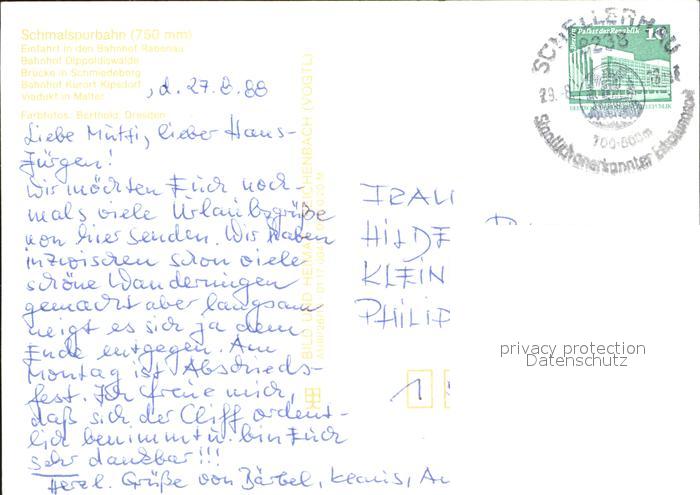 Schmalspurbahn (750 mm)
Einfahrt in den Bahnhof Rabenau
Bahnhof Dippoldiswalde
Brücke in Schmiedeberg
Bahnhof Kurort Kipsdorf
Viadukt in Malter
Farbfotos: Berthold, Dresden
, d. 27.8.88
Liebe Mutti, lieber Hans-
Jürgen!
Wir möchten Euch noch-
mals viele Urlaubsgrüße
von hier senden. Wir haben
inzwischen schon viele
schöne Wanderungen
gemacht aber langsam
neigt es sich ja dem
Ende entgegen. Am
Montag ist Abschieds-
fest. Ich freue mich,
daß sich der Cliff ordent-
lich benimmt u. bin Euch
sehr dankbar!!!
Herzl. Grüße von Bärbel,
BILD UND HEIMAT REICHENBACH (VOGTL)
SCHELLERHAU
8238
Palast der Republik
Staatlich anerkannter Erholungsort
FRAU
HILDE
KLEIN
PHILIP
1
privacy protection
Datenschutz